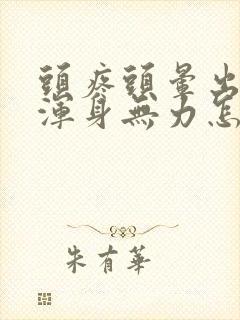 頭疼頭暈出
渾身無力怎
朱有華